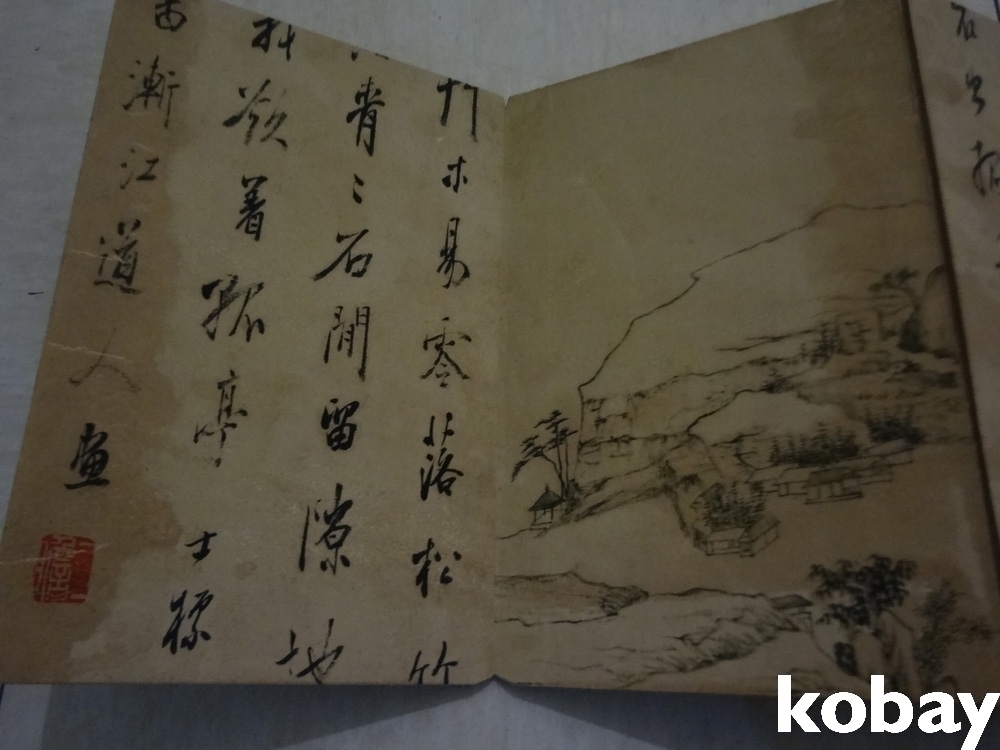 石
竹木易零落松竹
青〻石間留隙地
料欲着孤亭 士標
漸江道人畫
kobay